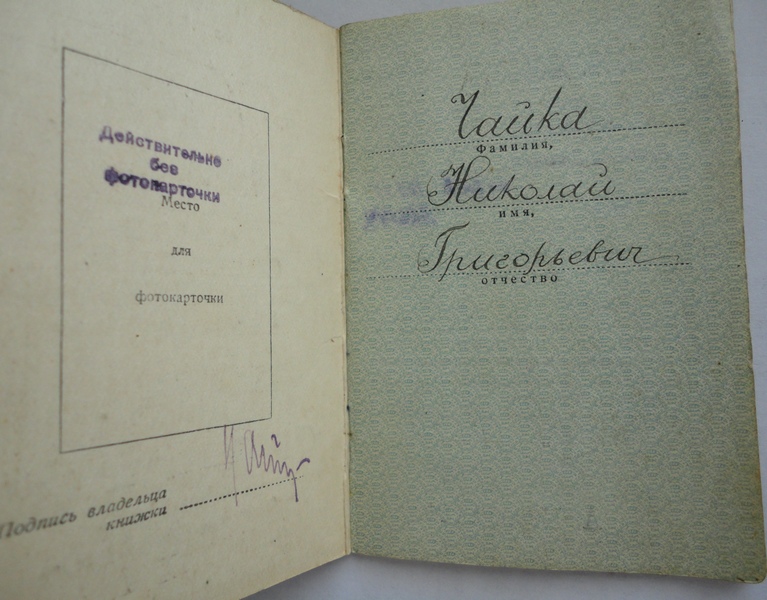 Действительно
без
фотокарточки
Место
для
фотокарточки
Подпись владельца
книжки
Чайка
фамилия,
Николай
имя,
Григорьевич
отчество